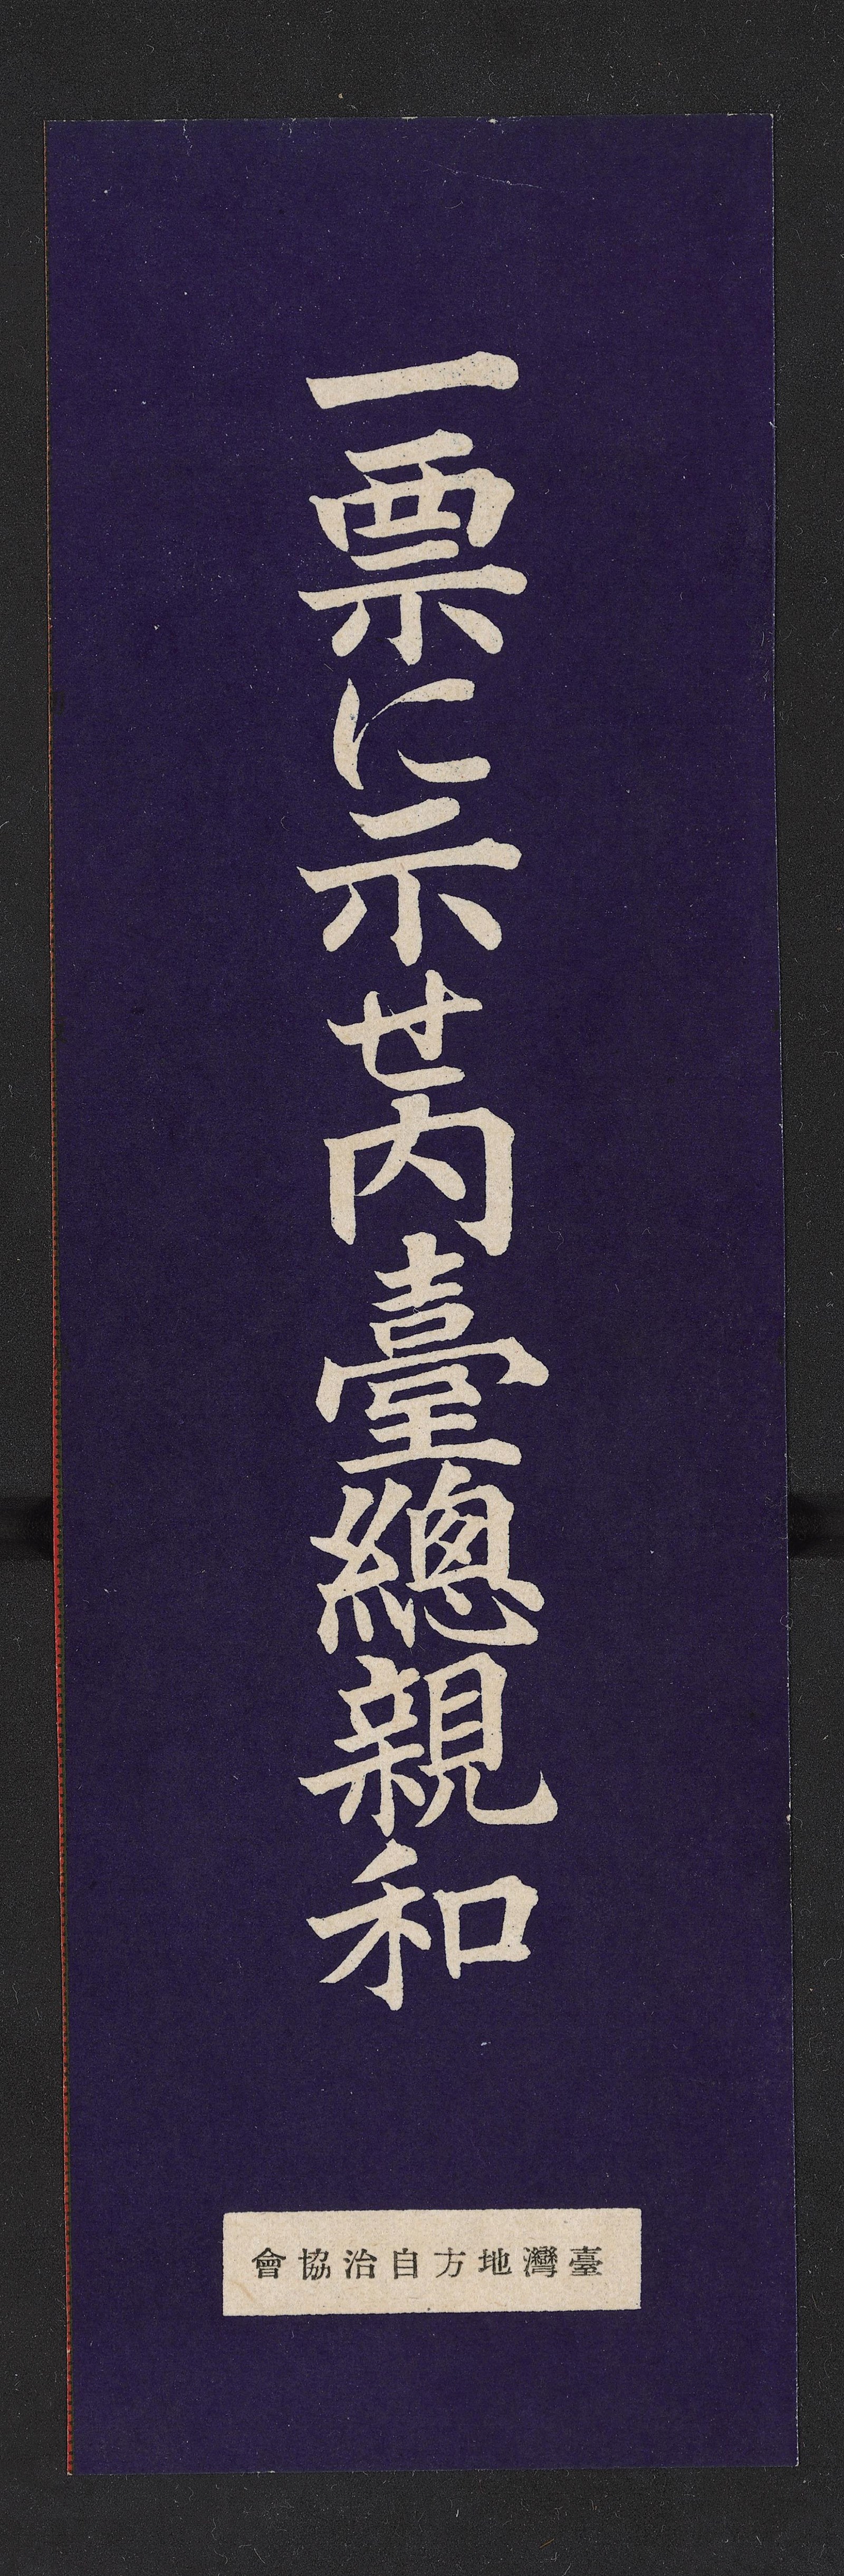 一票に示せ内臺總親和
臺灣地方自治協會